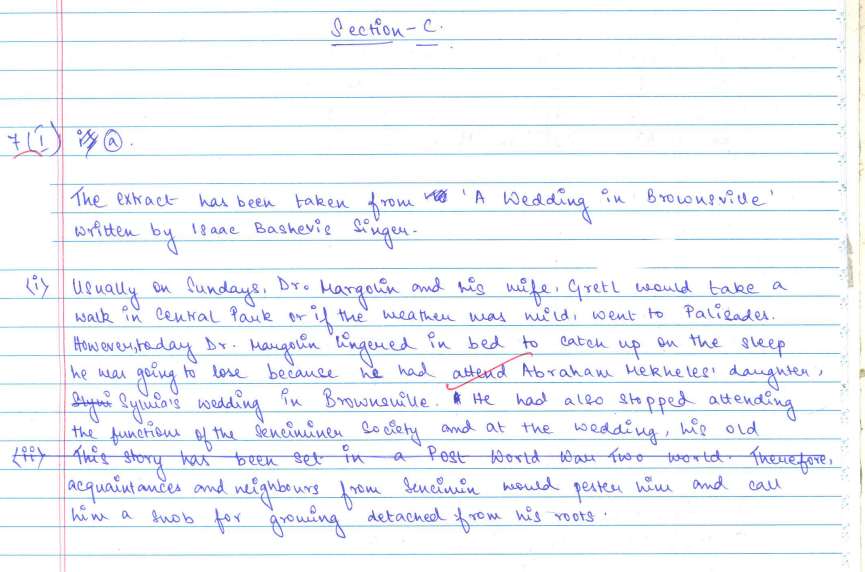 Section-C.
7(I) (a).
The extract has been taken from 'A Wedding in Brownsville'
written by Isaac Bashevis Singer.
(i) Usually on Sundays, Dr. Margolin and his wife, Gretl would take a
walk in Central Park or if the weather was mild, went to Palisades.
However, today Dr. Margolin lingered in bed to catch up on the sleep
he was going to lose because he had attend Abraham Mekheles' daughter,
Sylvia's wedding in Brownsville. He had also stopped attending
the functions of the Senciminer Society and at the wedding, his old
(ii) This story has been set in a Post World War Two world. Therefore,
acquaintances and neighbours from Sencimin would pester him and call
him a snob for growing detached from his roots.